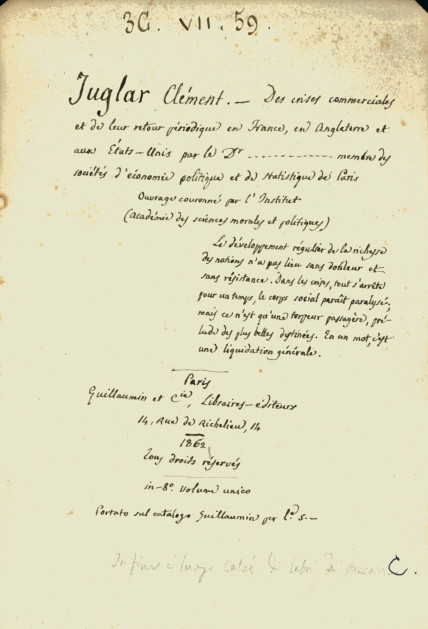 3G. VII. 59.
Juglar Clément. — Des crises commerciales
et de leur retour périodique en France, en Angleterre et
aux États-Unis par le Dr ------------ membre des
sociétés d'économie politique et de statistique de Paris
Ouvrage couronné par l'Institut
(Académie des sciences morales et politiques)
Le développement régulier de la richesse
des nations n'a pas lieu sans douleur et
sans résistance. Dans les crises, tout s'arrête
pour un temps, le corps social paraît paralysé;
mais ce n'est qu'une torpeur passagère, pré-
lude des plus belles destinées. En un mot, c'est
une liquidation générale.
Paris
Guillaumin et Cie, Libraires-éditeurs
14, Rue de Richelieu, 14
1862
Tous droits réservés
in-8º volume unico
Portato sul catalogo Guillaumin per L. 5.—
In fine
C.